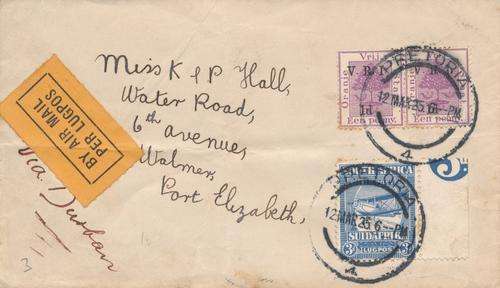 Miss K & P Hall,
Water Road,
6th avenue,
Walmer,
Port Elizabeth,
BY AIR MAIL
PER LUGPOS
Via Durban
V R I
1d
Oranje
Een penny
Een penny
PRETORIA
12 MAR 25 6 - PM
4
SOUTH AFRICA
SUIDAFRIKA
3
LUGPOS
3
PRETORIA
12 MAR 25 6 - PM
4